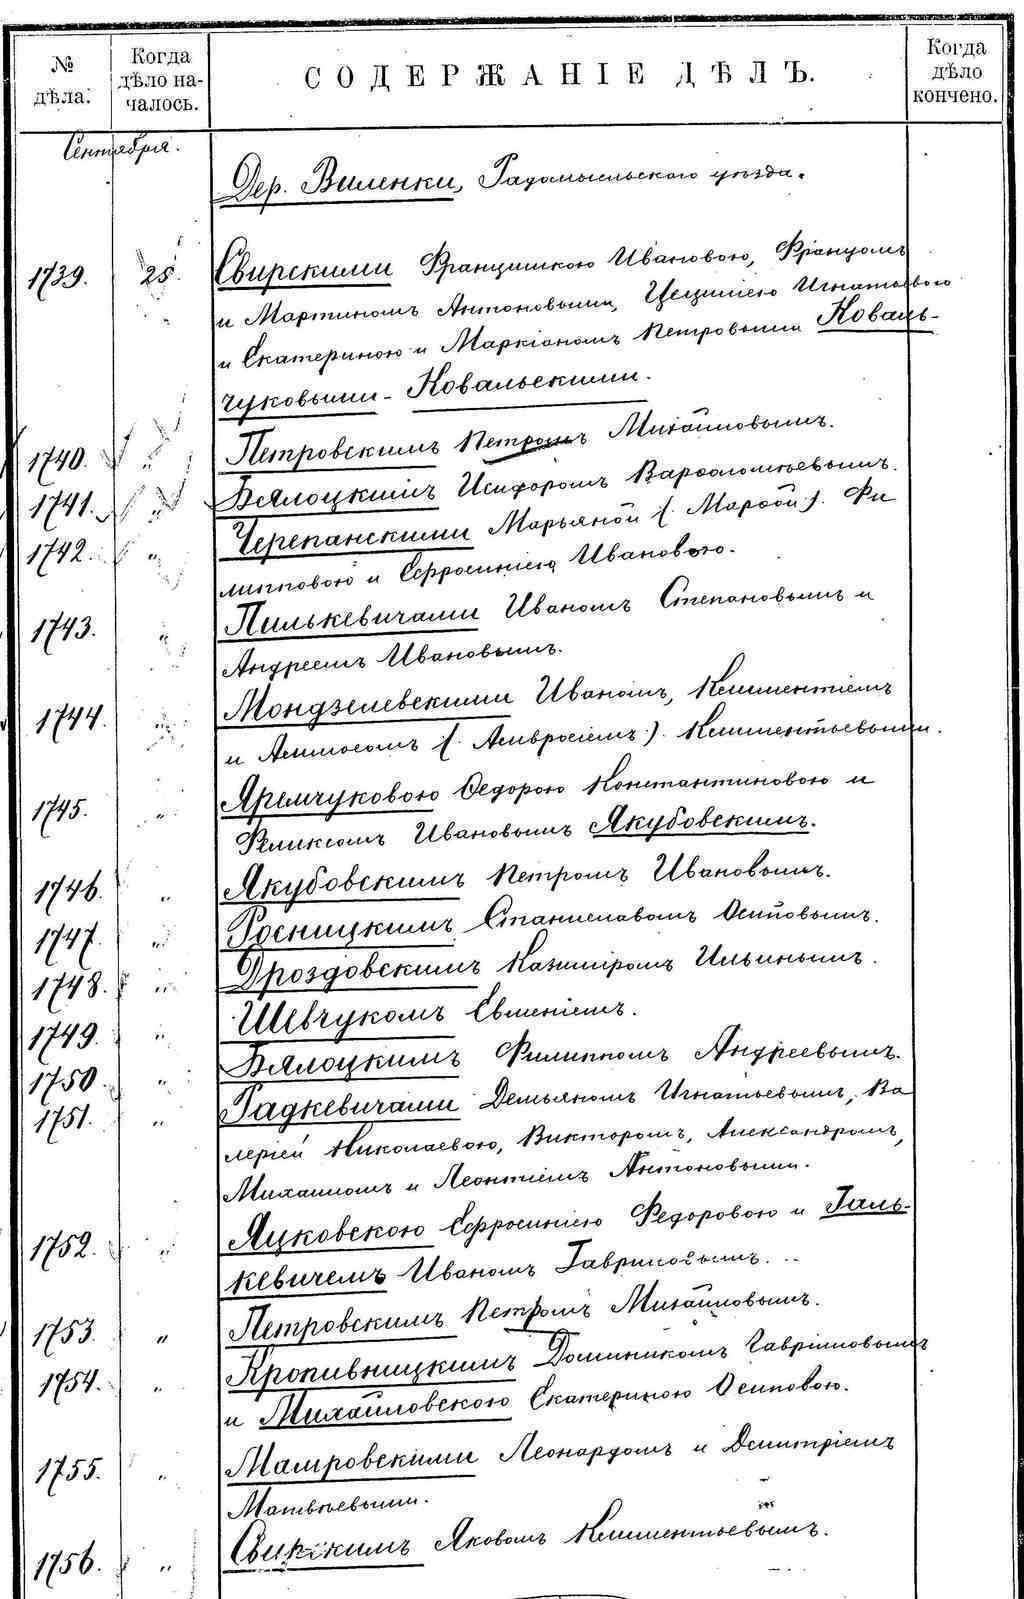 № дѣла.
Когда дѣло на-
чалось.
СОДЕРЖАНІЕ ДѢЛЪ.
Когда дѣло кончено.
Сентября.
Дер. Виленки, Радомысльскаго уѣзда.
1739. 25. Свирскими Францишкою Ивановою, Францомъ
и Мартиномъ Антоновыми, Цециліею Игнатьевою
и Екатериною и Маркіаномъ Петровыми Коваль-
чуковыми-Ковальскими.
1740. " Петровскимъ Петромъ Михайловымъ.
1741. " Бялоцкимъ Исидоромъ Варфоломѣевымъ.
1742. " Черепанскими Марьяной (Марфой). Фи
липповою и Ефросиніею Ивановою.
1743. " Пилькевичами Иваномъ Степановымъ и
Андреемъ Ивановымъ.
1744. " Мондзелевскими Иваномъ, Климентіемъ
и Амвросомъ (Амвросіемъ). Климентьевыми.
1745. " Яремчуковою Федорою Константиновою и
Феликсомъ Ивановымъ Якубовскимъ.
1746. " Якубовскимъ Петромъ Ивановымъ.
1747. " Росницкимъ Станиславомъ Осиповымъ.
1748. " Дроздовскимъ Казиміромъ Ильинымъ.
1749. " Шевчукомъ Евменіемъ.
1750. " Бялоцкимъ Филиппомъ Андреевымъ.
1751. " Радкевичами Демьяномъ Игнатьевымъ, Ва
леріей Николаевою, Викторомъ, Александромъ,
Михаиломъ и Леонтіемъ Антоновыми.
1752. " Яцковскою Ефросиніею Федоровою и Галь-
кевичемъ Иваномъ Гавриловымъ.
1753. " Петровскимъ Петромъ Михайловымъ.
1754. " Кропивницкимъ Доминикомъ Гавріиловымъ
и Михайловскою Екатериною Осиповою.
1755. " Мамровскими Леонардомъ и Дмитріемъ
Матвѣевыми.
1756. " Свирскимъ Яковомъ Климентьевымъ.